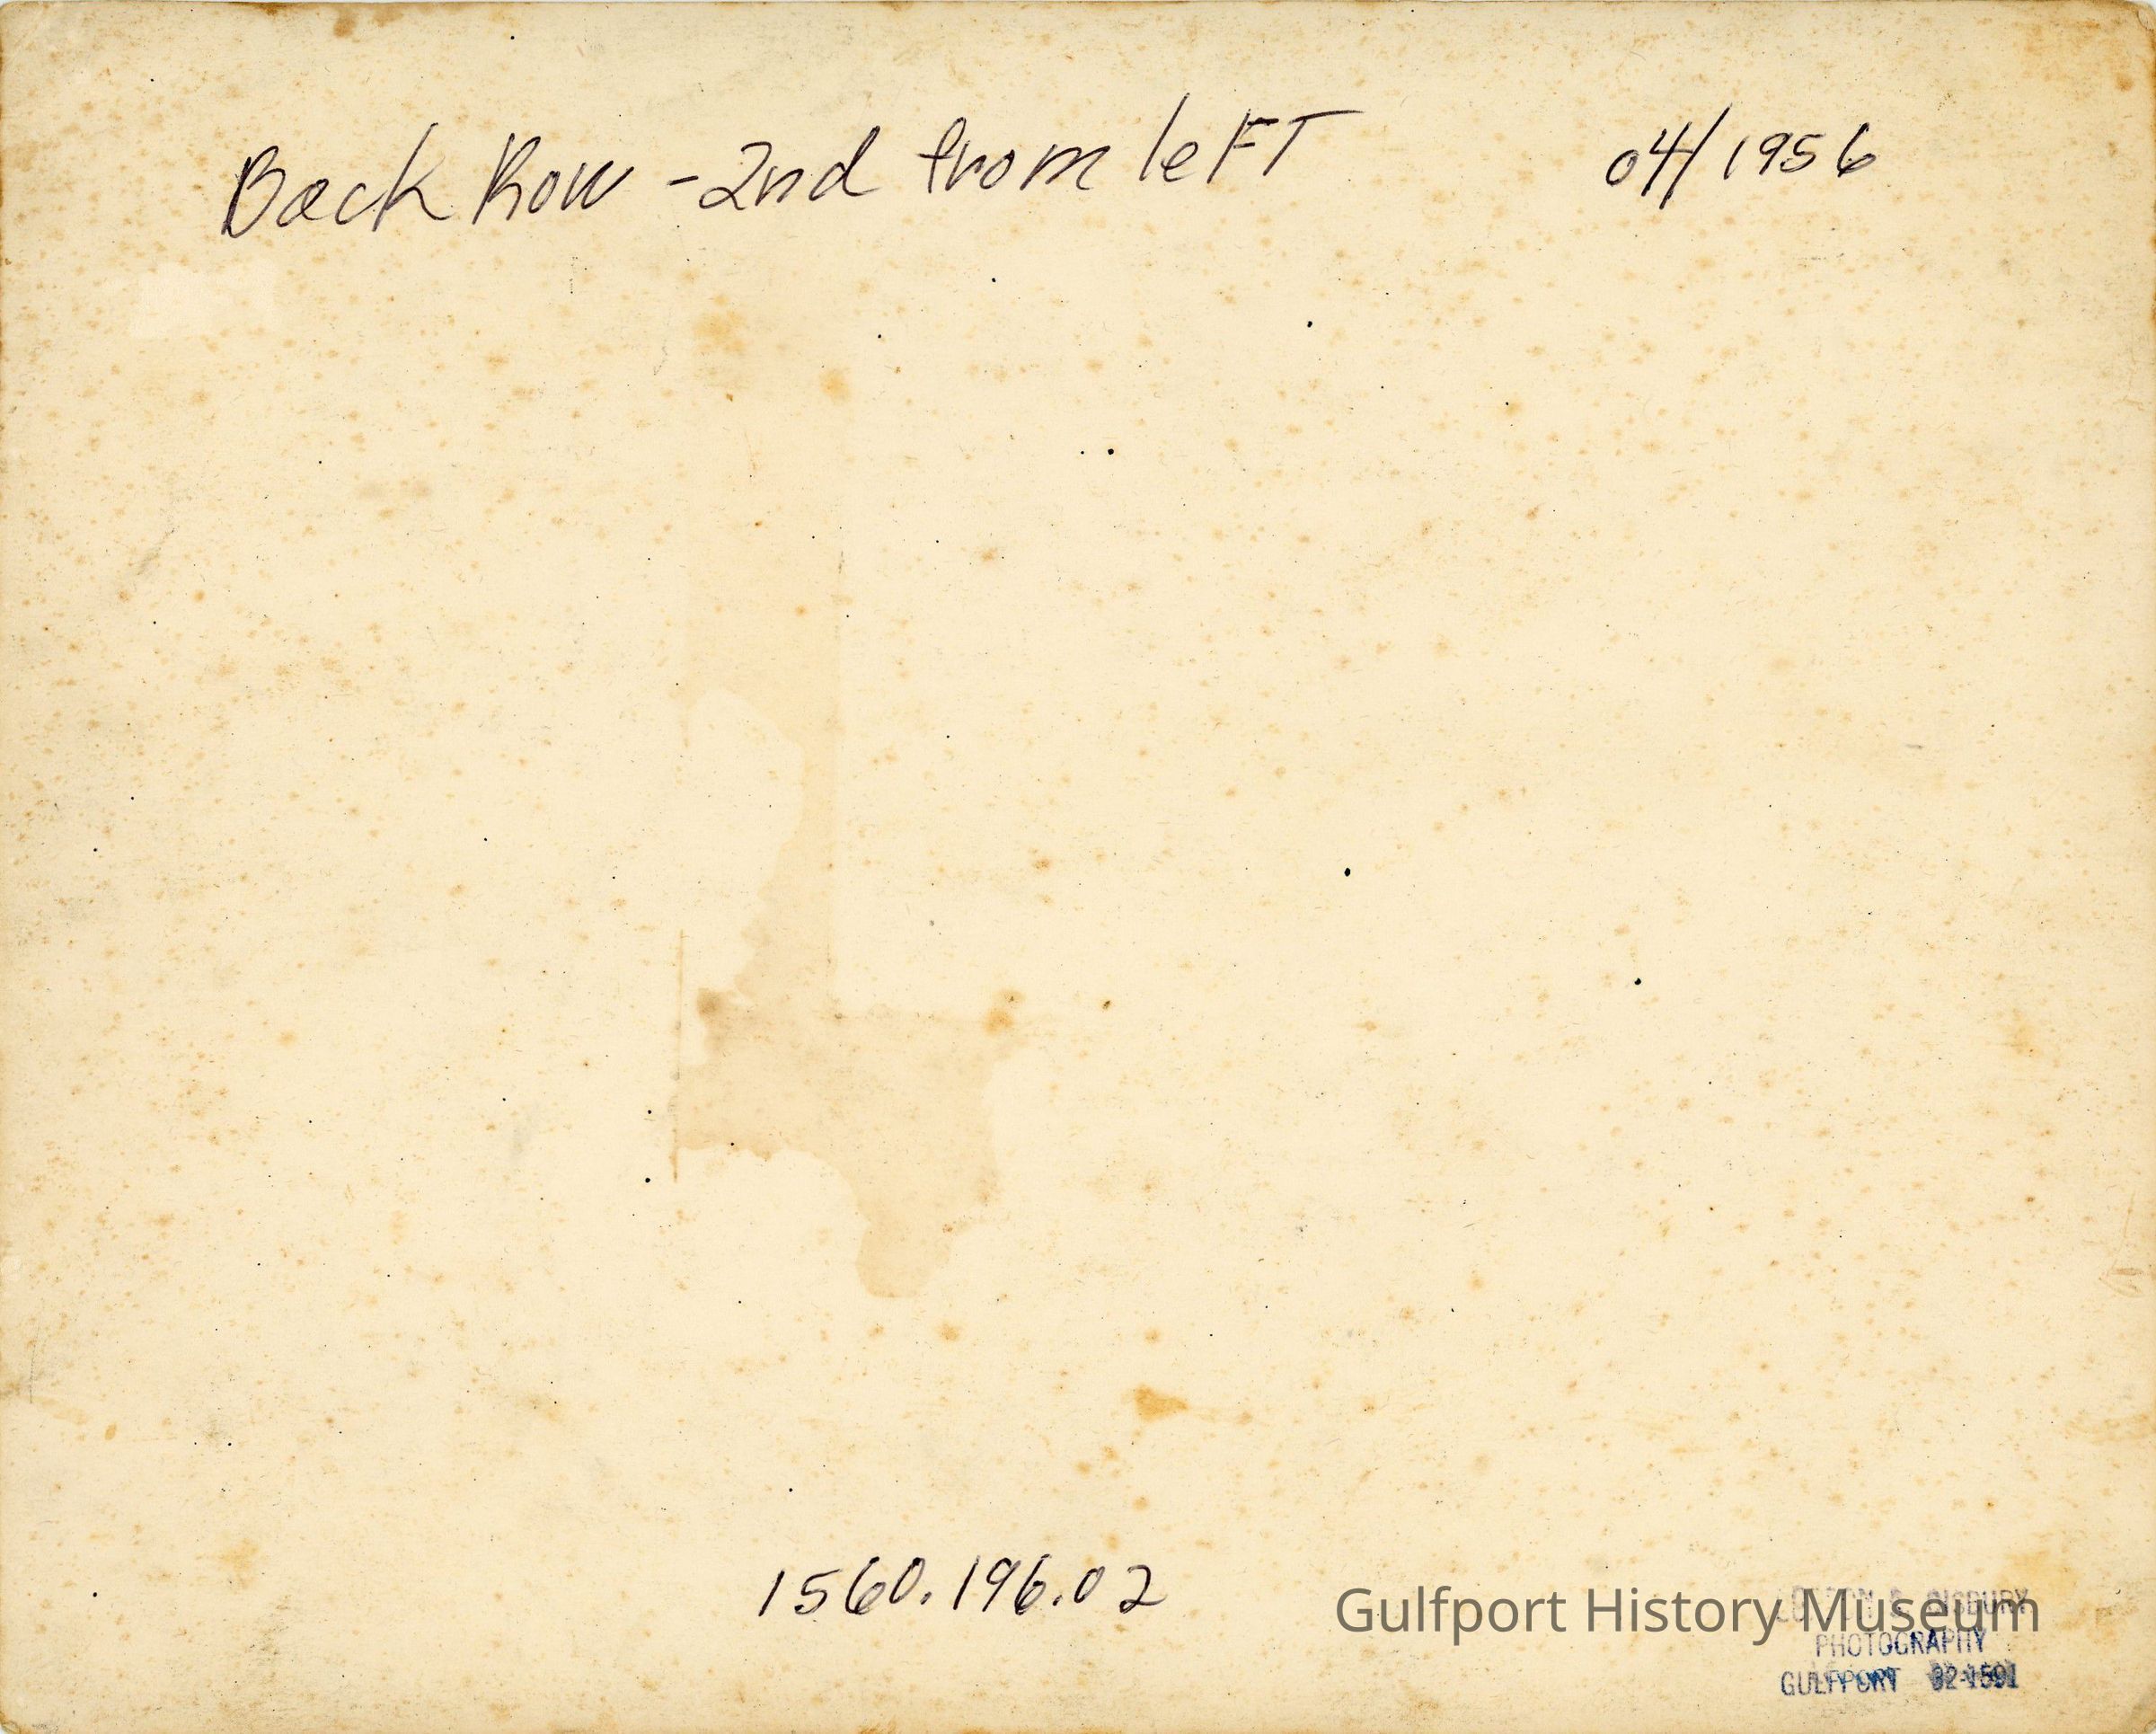 Back Row - 2nd from leFT 04/1956
1560.196.02
Gulfport History Museum
PHOTOGRAPHY
GULFPORT